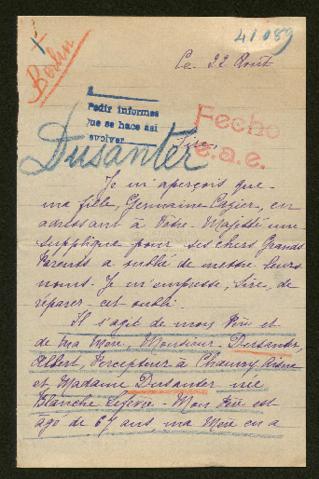 41089
Le 22 Août
Berlin
Pedir informes
que se hace asi
Fecho
e.a.e.
Sire,
Dusanter
Je m'aperçois que
ma fille, Germaine Cazier, en
adressant à Votre Majesté une
supplique pour ses chers Grands
Parents a oublié de mettre leurs
noms. Je m'empresse, Sire, de
réparer cet oubli.
Il s'agit de mon Père et
de ma Mère, Monsieur Dusanter,
Albert, Percepteur à Chauny Aisne
et Madame Dusanter née
Blanche Lefèvre - Mon Père est
âgé de 67 ans ma Mère en a